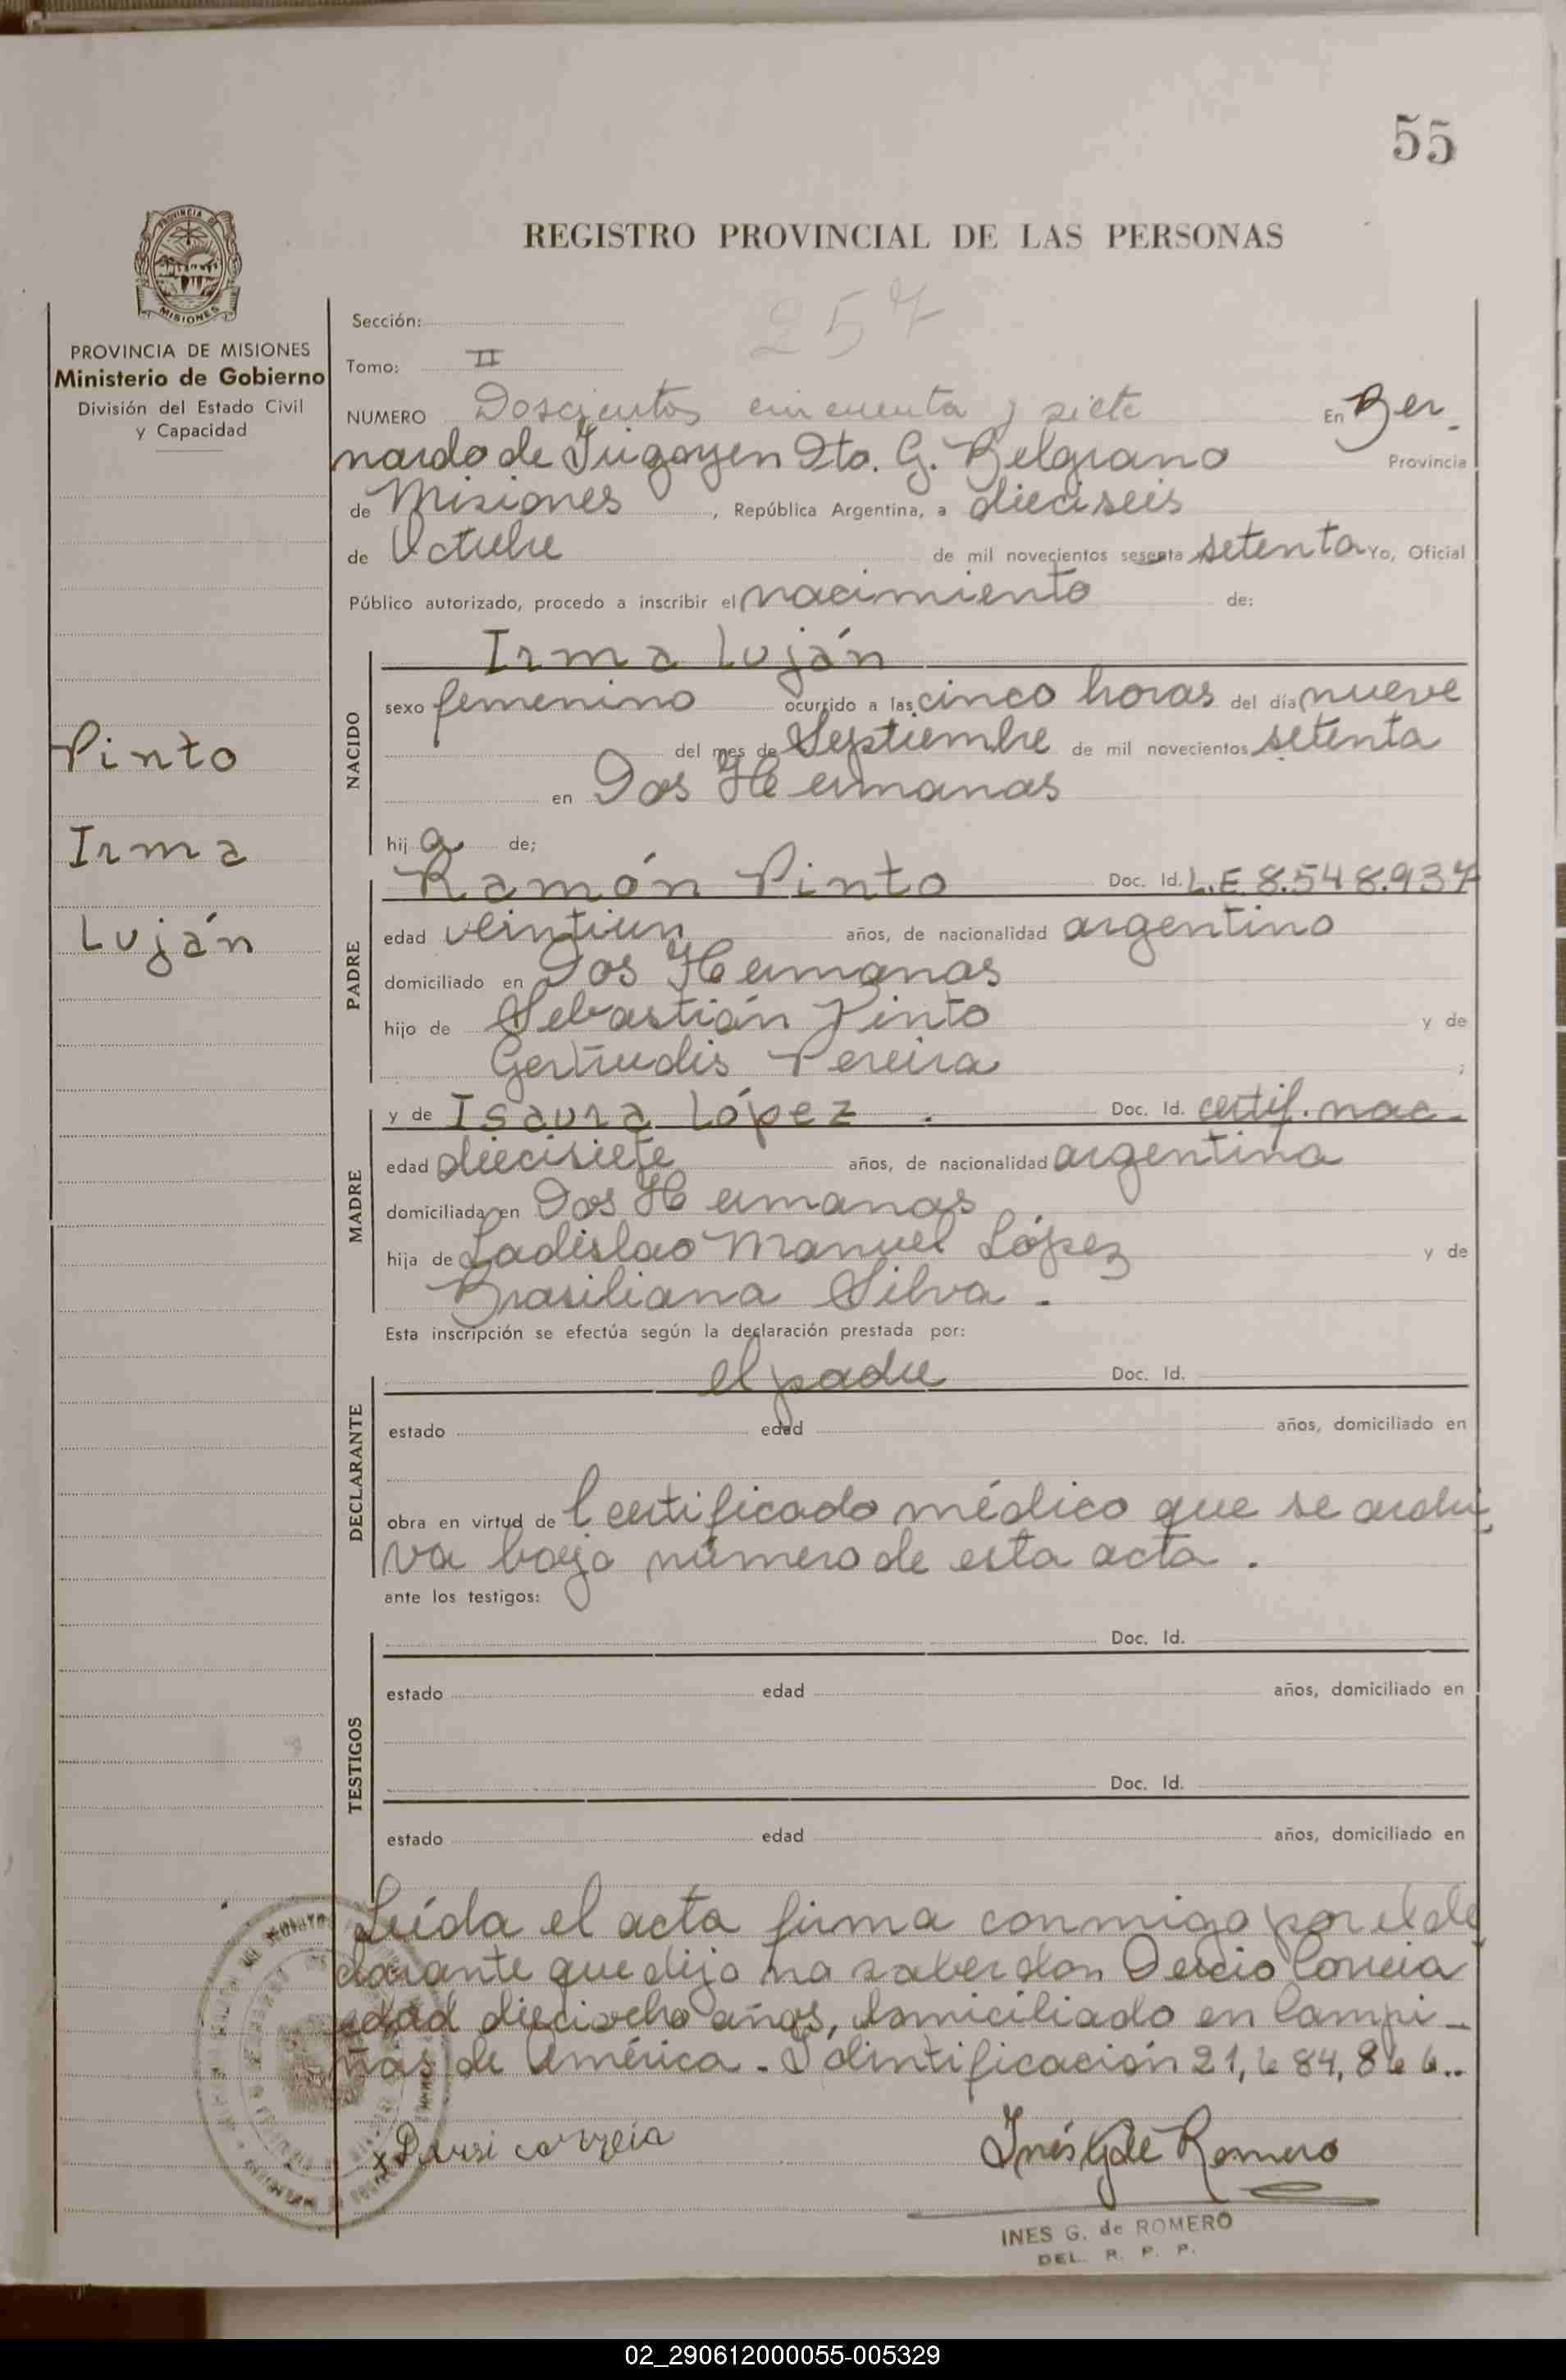 55
REGISTRO PROVINCIAL DE LAS PERSONAS
PROVINCIA DE
MISIONES
PROVINCIA DE MISIONES
Ministerio de Gobierno
División del Estado Civil
y Capacidad
Pinto
Irma
Luján
257
Sección:
Tomo: II
NUMERO Doscientos cincuenta y siete En Ber-
nardo de Irigoyen Dto. G. Belgrano Provincia
de Misiones, República Argentina, a dieciseis
de Octubre de mil novecientos sesenta setenta Yo, Oficial
Público autorizado, procedo a inscribir el nacimiento de:
NACIDO
Irma Luján
sexo femenino ocurrido a las cinco horas del día nueve
del mes de Septiembre de mil novecientos setenta
en Dos Hermanas
hija de;
PADRE
Ramón Pinto Doc. Id. L.E 8.548.937
edad veintiun años, de nacionalidad argentino
domiciliado en Dos Hermanas
hijo de Sebastián Pinto y de
Gertrudis Pereira ;
MADRE
y de Isaura López. Doc. Id. certif. nac.
edad diecisiete años, de nacionalidad argentina
domiciliada en Dos Hermanas
hija de Ladislao Manuel López y de
Brasiliana Silva.
Esta inscripción se efectúa según la declaración prestada por:
DECLARANTE
el padre Doc. Id.
estado edad años, domiciliado en
obra en virtud del certificado médico que se archi-
va bajo número de esta acta.
ante los testigos:
TESTIGOS
Doc. Id.
estado edad años, domiciliado en
Doc. Id.
estado edad años, domiciliado en
Leída el acta firma conmigo por el de
clarante que dijo no saber don Correia
edad dieciocho años, domiciliado en Campi-
ñas de América. Idintificación 21,684,866..
correia
Inés G de Romero
INES G. de ROMERO
DEL. R. P. P.
02_290612000055-005329